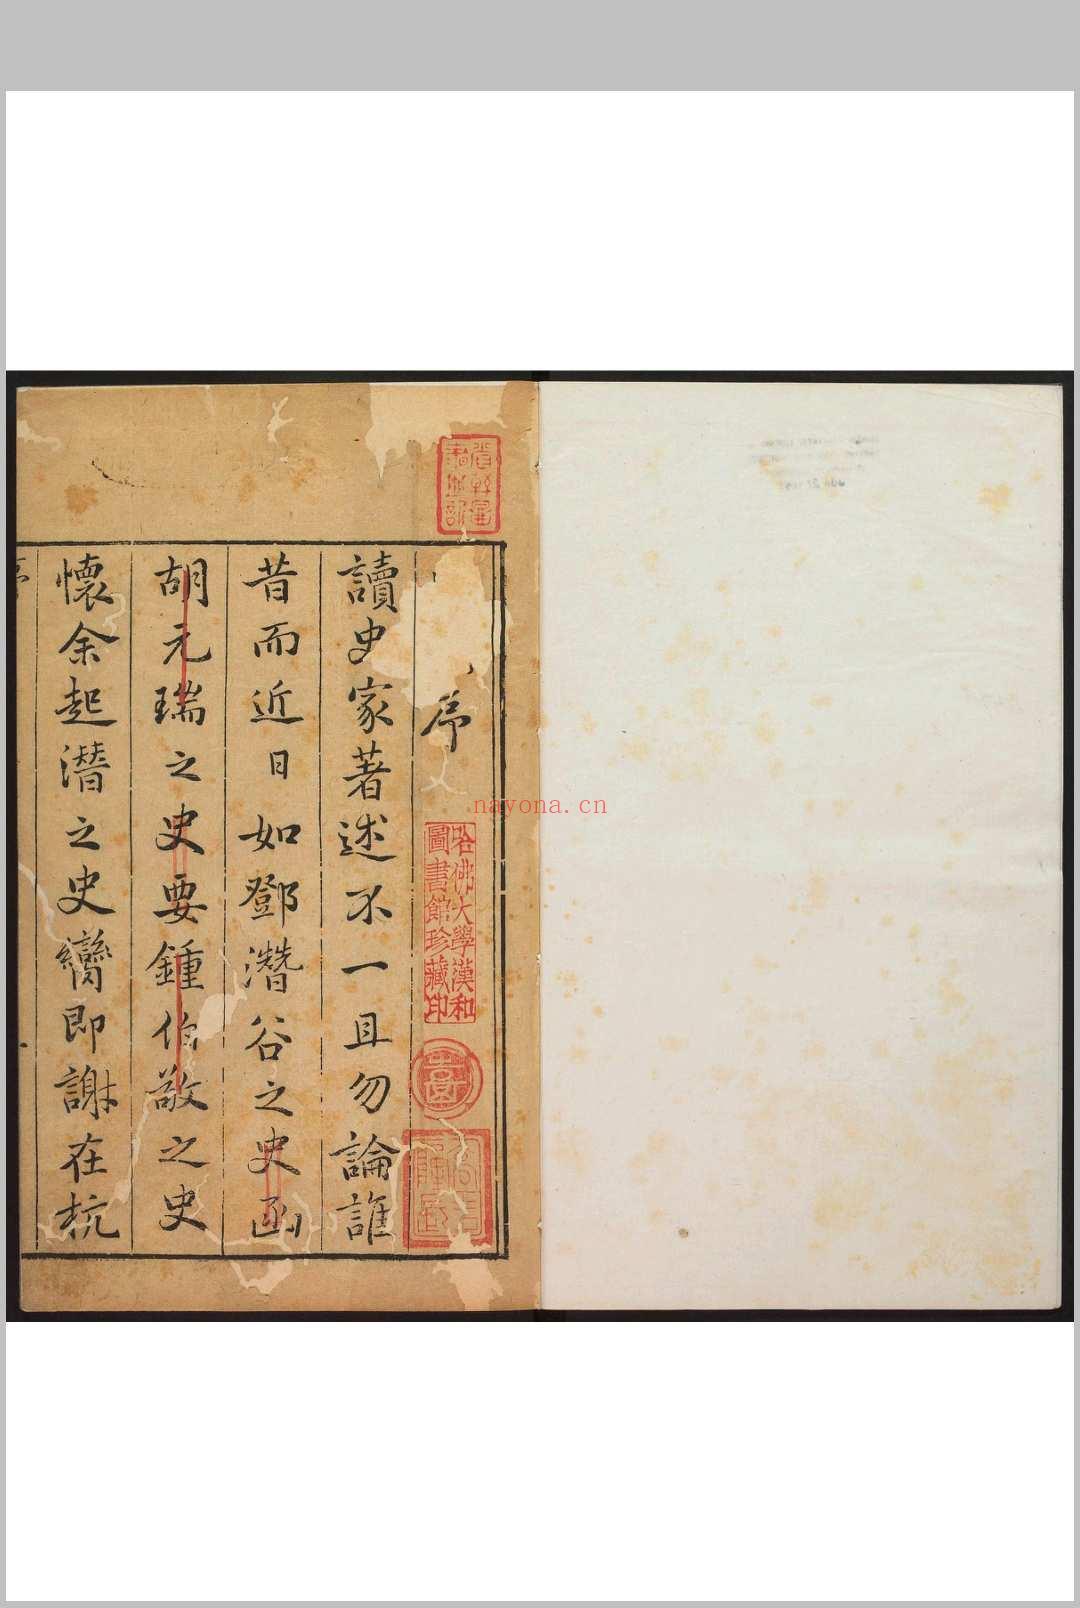 序
讀史家著述不一且勿論誰
昔而近日如鄧潛谷之史函
胡元瑞之史要鍾伯敬之史
懷余起潛之史臠即謝在杭
哈佛大學漢和
圖書館珍藏印
nayona.cn